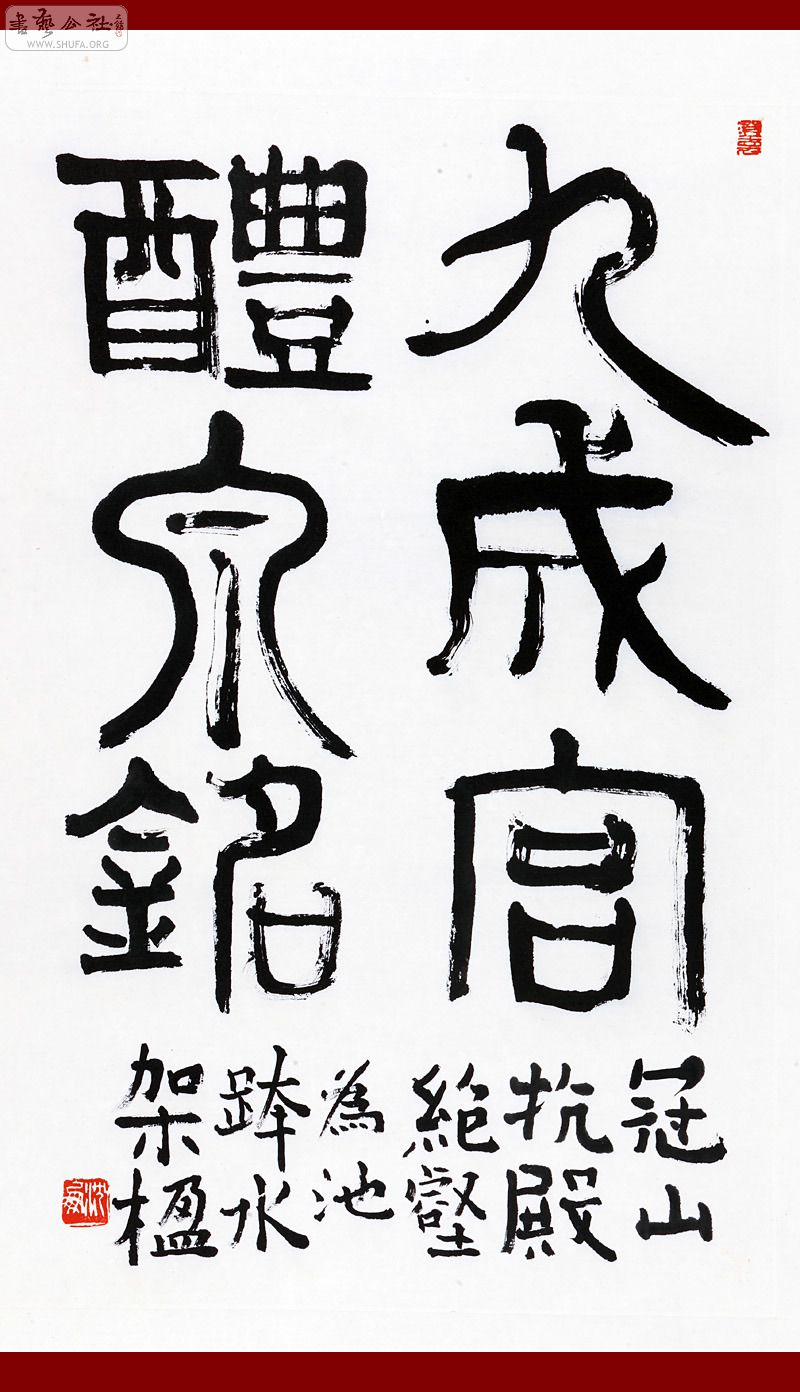 書藝公社
WWW.SHUFA.ORG
九成宮
醴泉銘
冠山
抗殿
絕壑
為池
跨水
架楹